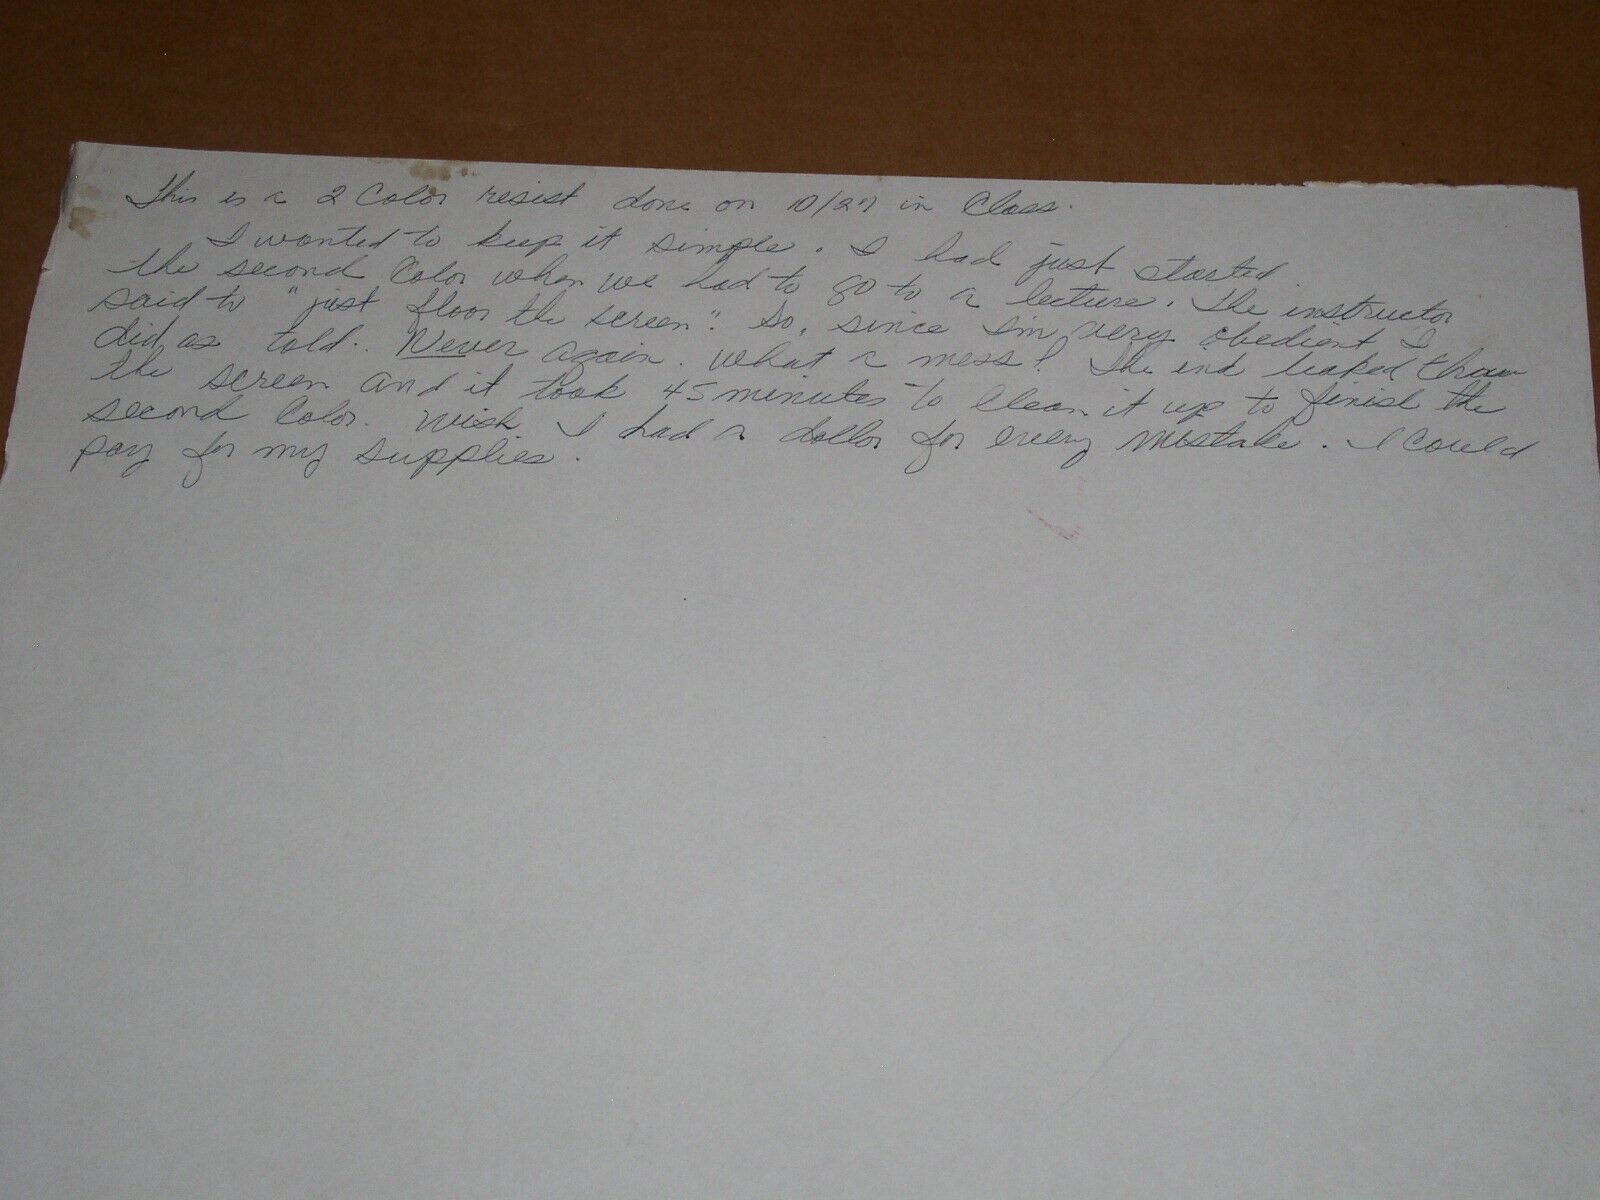 This is a 2 Color resist done on 10/27 in Class.
I wanted to keep it simple. I had just started
the second Color when we had to go to a lecture. The instructor
said to "just floor the screen". So, since I'm very obedient I
did as told. Never again. What a mess! The ink leaked thru
the screen and it took 45 minutes to Clean it up to finish the
second Color. Wish I had a dollar for every mistake. I Could
pay for my supplies.